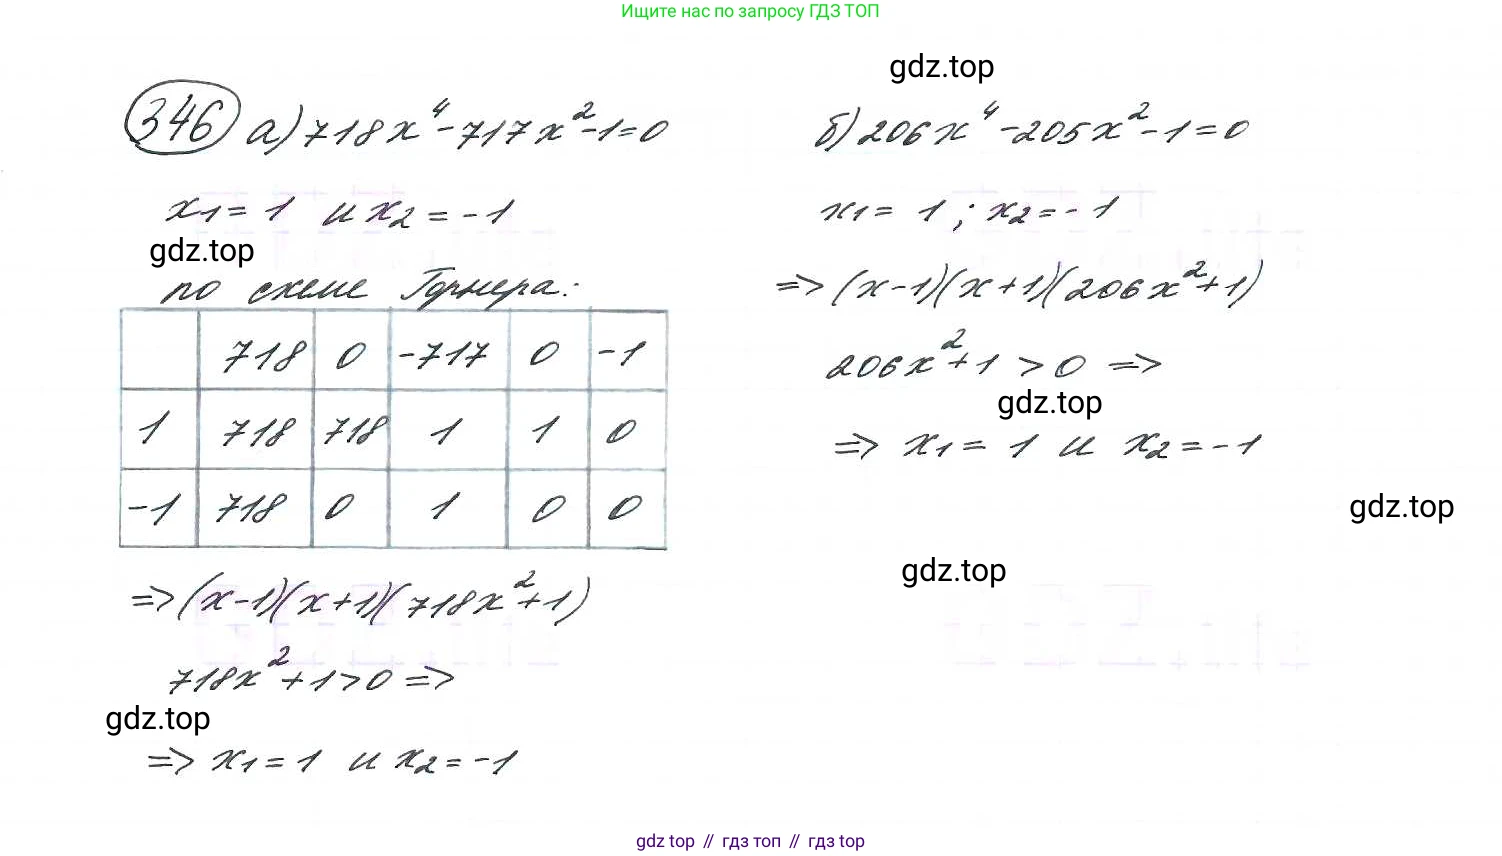 Ищите нас по запросу ГДЗ ТОП
gdz.top
346 а) 718x⁴-717x²-1=0
x₁=1 и x₂=-1
gdz.top
по схеме Горнера:
718 0 -717 0 -1
1 718 718 1 1 0
-1 718 0 1 0 0
=> (x-1)(x+1)(718x²+1)
718x²+1>0 =>
gdz.top
=> x₁=1 и x₂=-1
б) 206x⁴-205x²-1=0
x₁=1; x₂=-1
=> (x-1)(x+1)(206x²+1)
206x²+1>0 =>
gdz.top
=> x₁=1 и x₂=-1
gdz.top
gdz.top
gdz top // гдз топ // гдз top